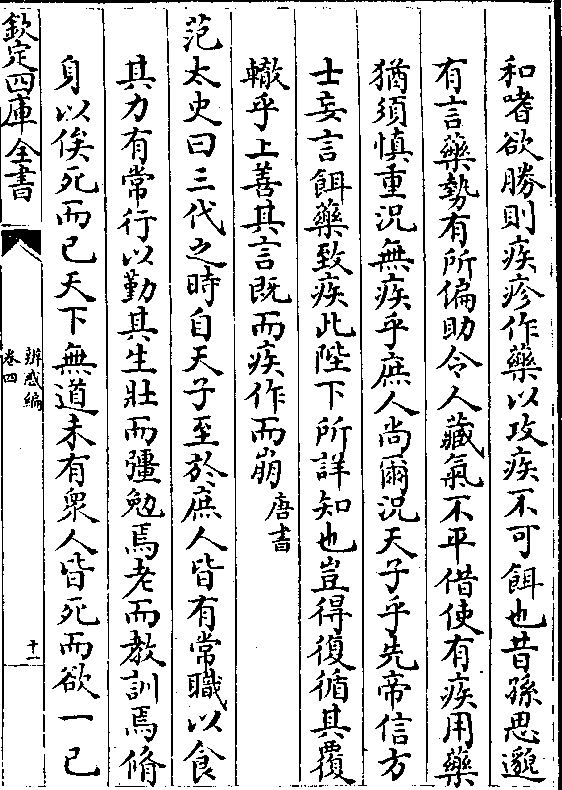 和嗜欲勝則疾疹作藥以攻疾不可餌也昔孫思邈
有言藥勢有所偏助令人藏氣不平借使有疾用藥
猶須慎重況無疾乎庶人尚爾況天子乎先帝信方
士妄言餌藥致疾此陛下所詳知也豈得復循其覆
轍乎上善其言既而疾作而崩唐書
范太史曰三代之時自天子至於庶人皆有常職以食
其力有常行以勤其生壯而彊勉焉老而教訓焉脩
身以俟死而已天下無道未有衆人皆死而欲一己
欽定四庫全書
辨惑編
卷四
十一